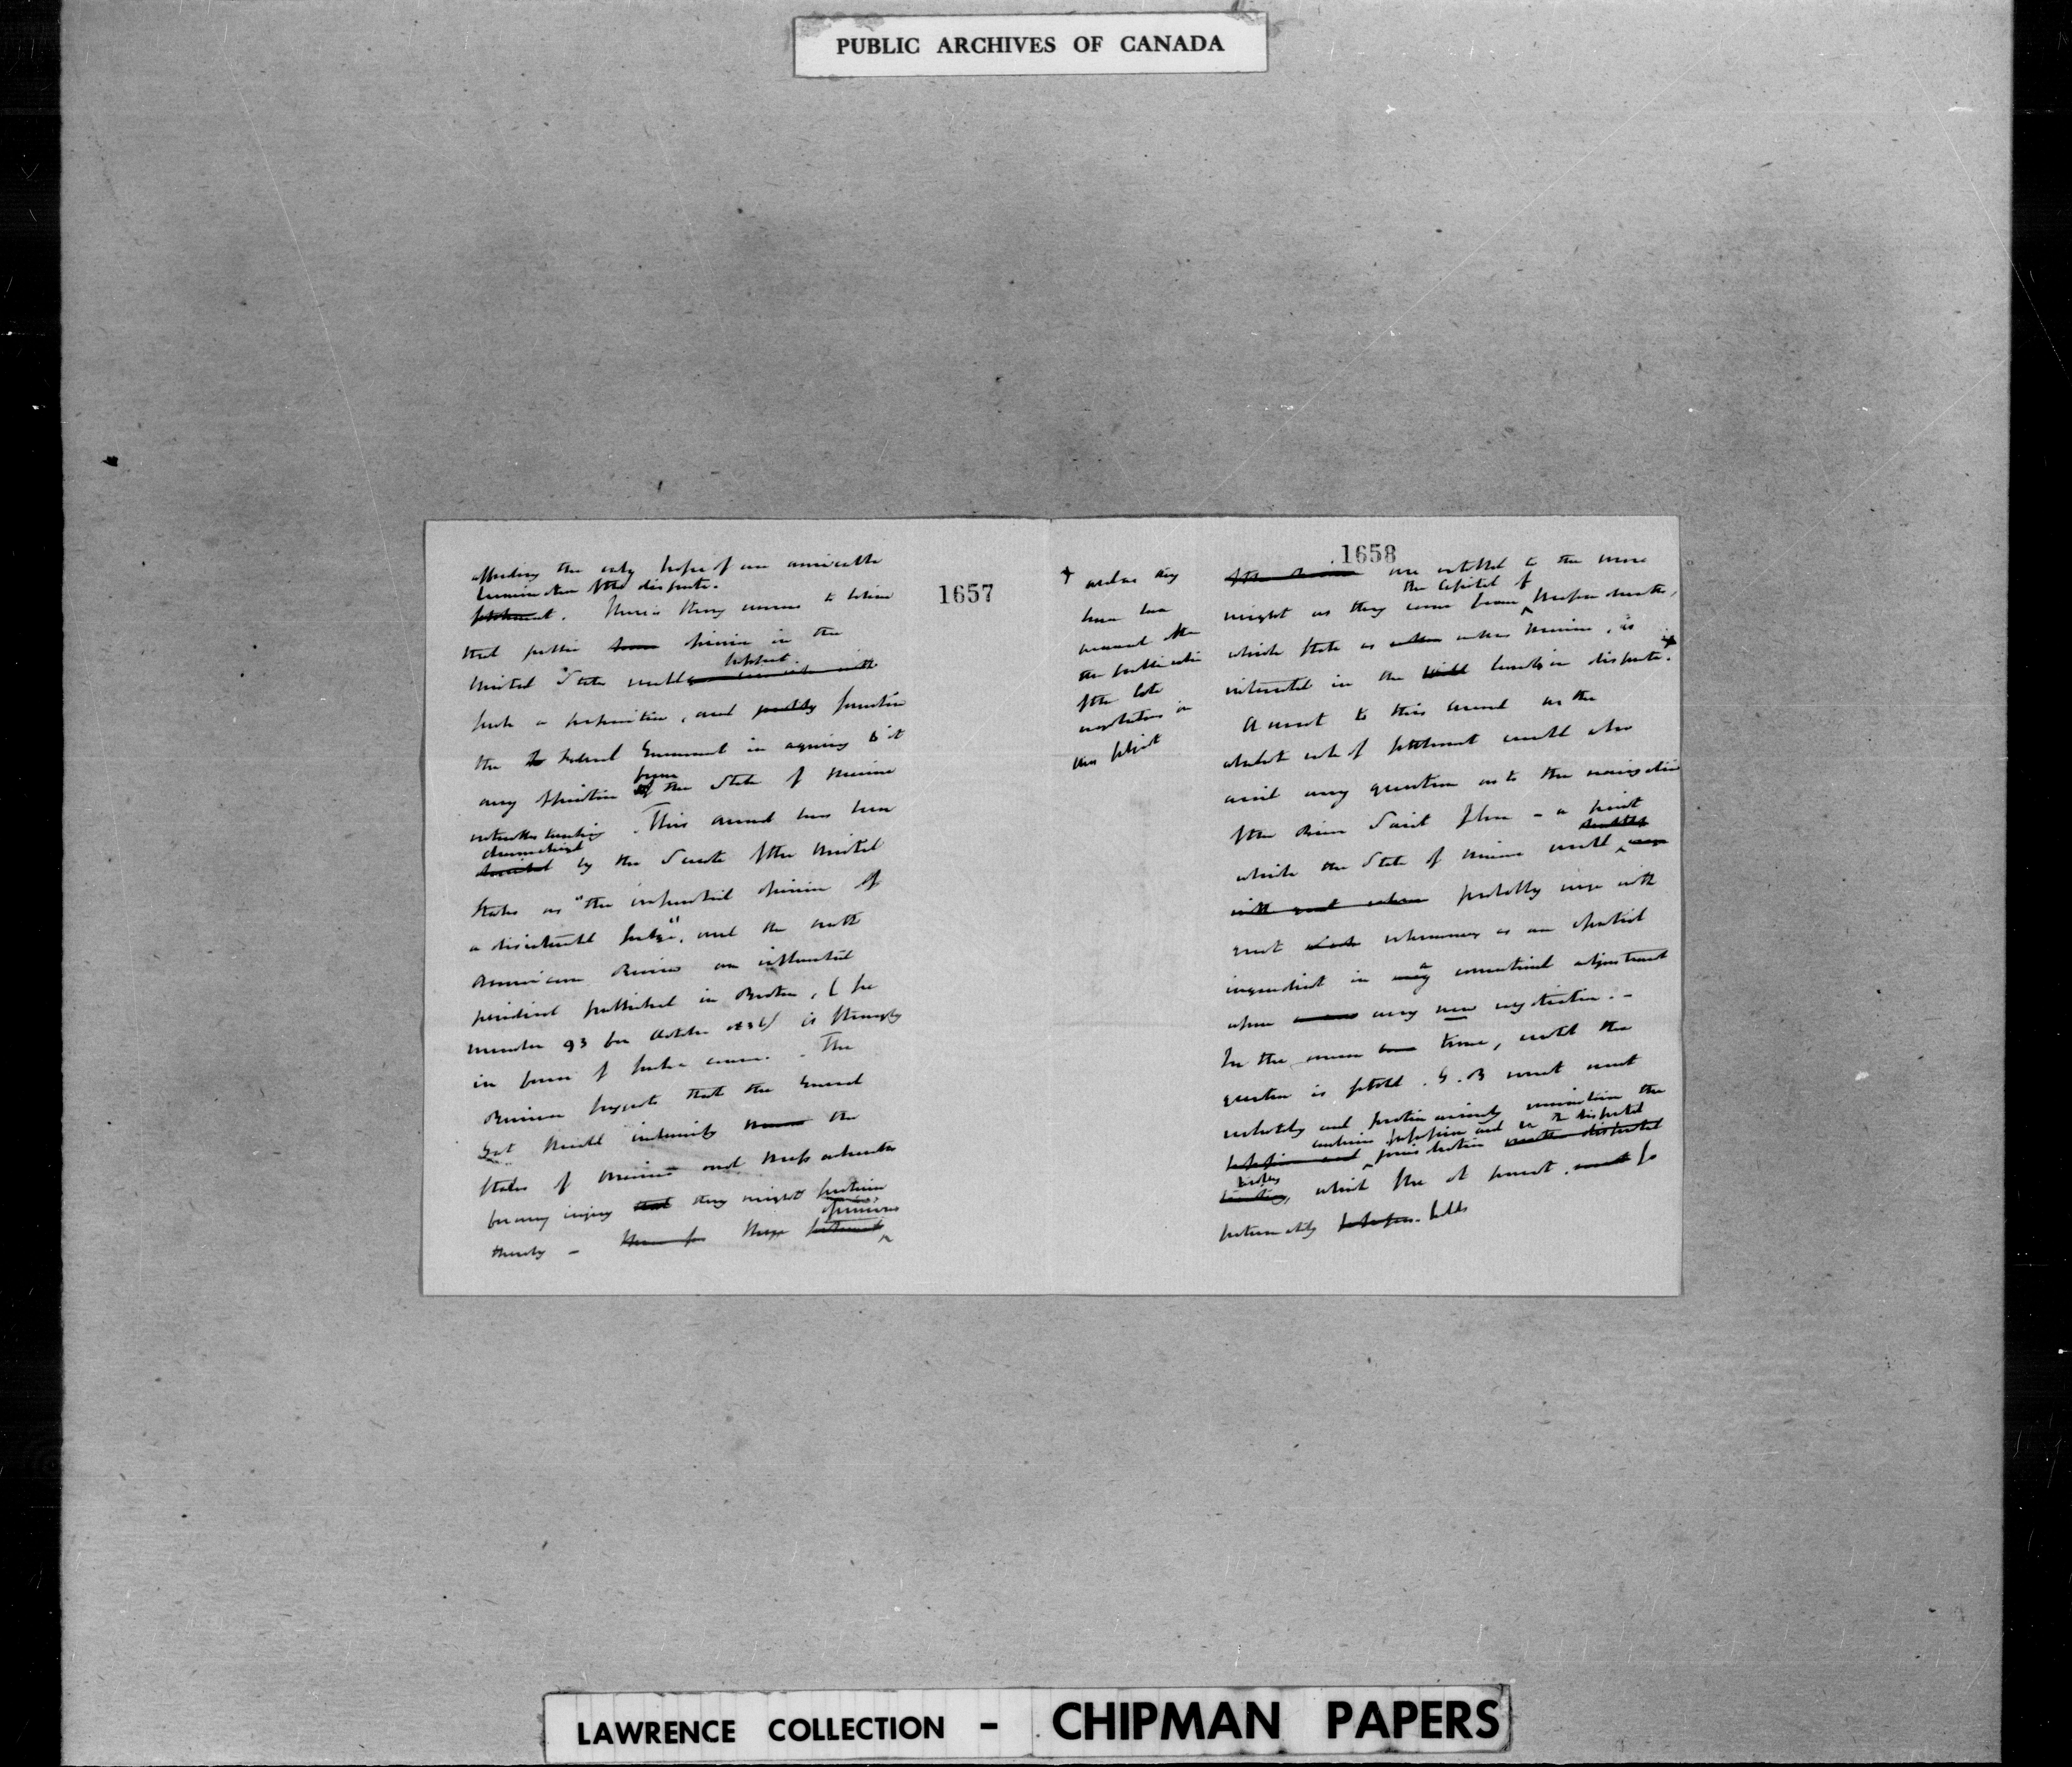 PUBLIC ARCHIVES OF CANADA
1657
affording the only hope of an amicable
termination of the dispute.
settlement. There is strong reason to believe
that public opinion in the
United States would support
such a proposition, and justify
the Federal Government in agreeing to it
any opposition from the State of Maine
notwithstanding. This award has been
characterized
by the Senate of the United
States as "the impartial opinion of
a disinterested Judge", and the North
American Review an influential
periodical published in Boston, (see
number 93 for October 1836) is strongly
in favor of such a course. - The
Review suggests that the General
Govt should indemnify the
States of Maine and Massachusetts
for any injury that they might sustain
thereby - These
opinions
1658
are entitled to the more
the Capital of
weight as they come from Massachusetts,
which State as well as Maine, is
interested in the lands in dispute.
+ and as they
have been
the publication
of the late
negotiations on
this subject
A resort to this award as the
mode of settlement would also
avoid any question as to the navigation
of the River Saint John - a point
which the State of Maine would
with great probably urge with
great vehemence as an essential
ingredient in any conventional adjustment
upon any new negotiation. -
In the mean time, until the
question is settled. G. B must
resolutely and maintain the
exclusive possession and in the disputed
jurisdiction
which she at present so
fortunately holds
LAWRENCE COLLECTION - CHIPMAN PAPERS